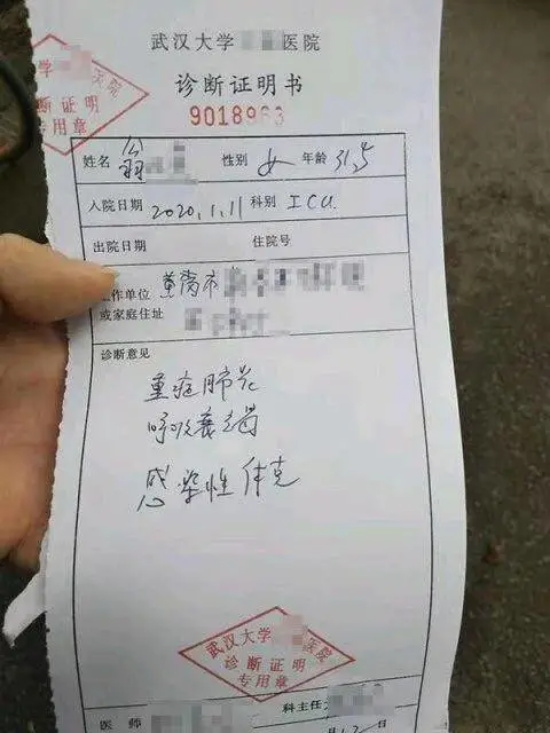 武汉大学 医院
诊断证明书
9018963
学 医院
诊断证明
专用章
姓名 翁 性别 女 年龄 31岁
入院日期 2020.1.11 科别 ICU
出院日期 住院号
工作单位
或家庭住址
诊断意见
重症肺炎
呼吸衰竭
感染性休克
武汉大学 医院
诊断证明
专用章
科主任
医师